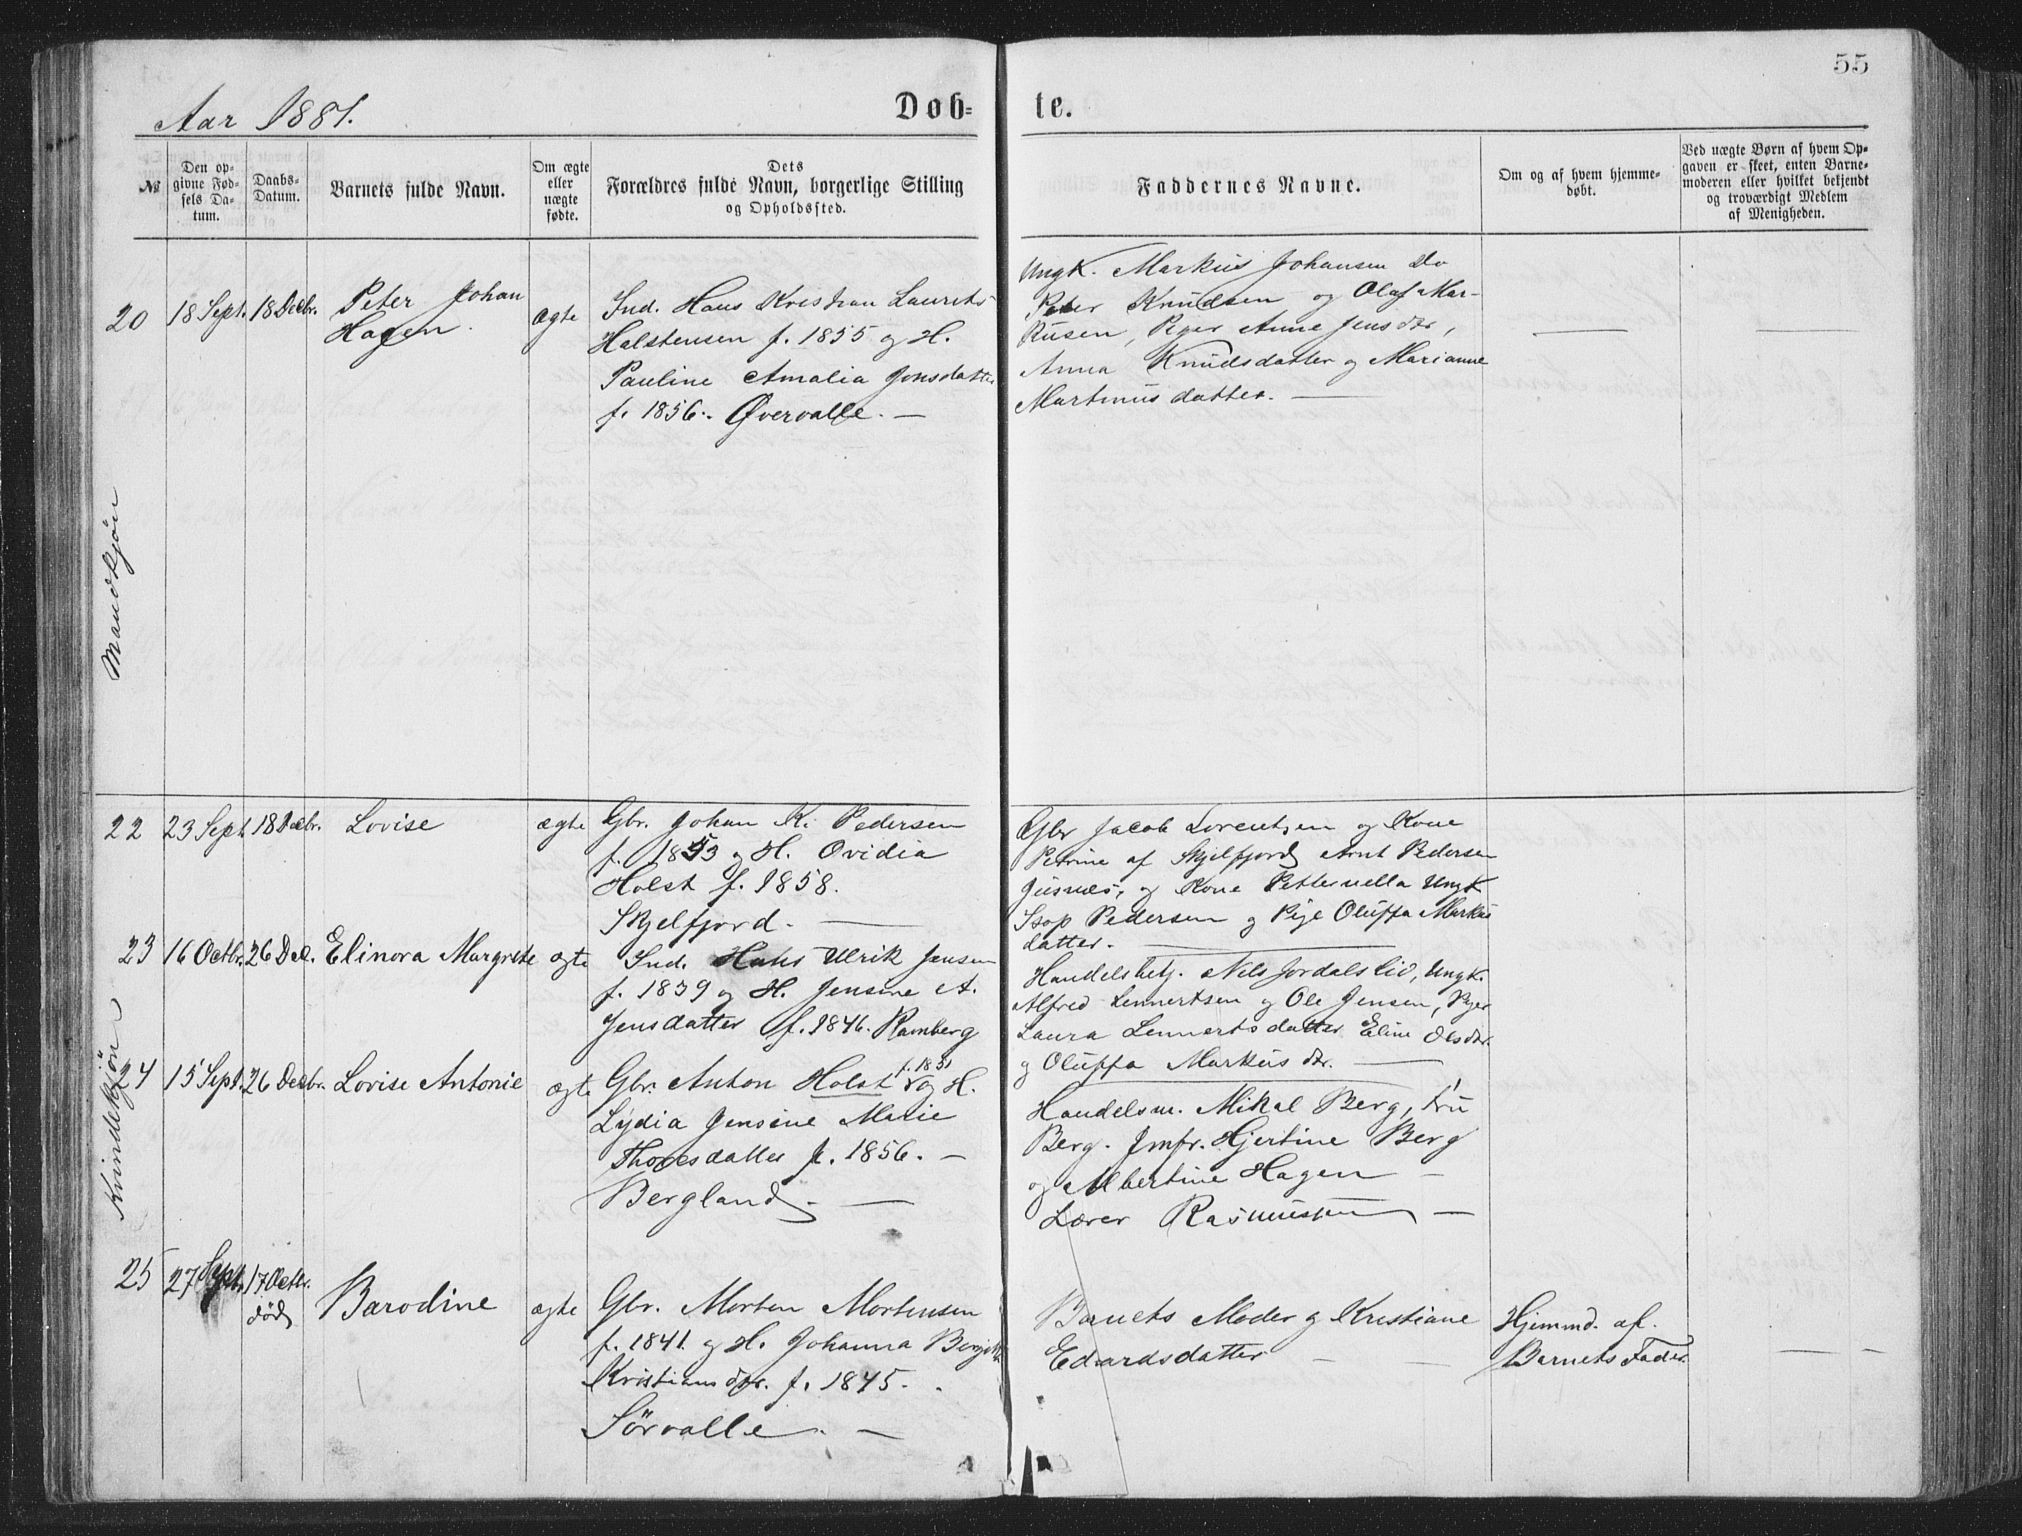 55
Aar 1881.
Døb- te.
№
Den op-
givne Fød-
sels Da-
tum.
Daabs-
Datum.
Barnets fulde Navn.
Om ægte
eller
uægte
fødte.
Dets
Forældres fulde Navn, borgerlige Stilling
og Opholdssted.
Faddernes Navne.
Om og af hvem hjemme-
døbt.
Ved uægte Børn af hvem Op-
gaven er skeet, enten Barne-
moderen eller hvilket bekjendt
og troværdigt Medlem
af Menigheden.
Mandkjøn
20 18 Sept. 18 Decbr. Peter Johan
Hagen. ægte
Ind. Hans Kristian Laurits
Halstensen f. 1855 og H.
Pauline Amalia Jonsdatter
f. 1856. Øvervalle. —
Ungk. Markus Johansen Do
Peter Knudsen og Olaf Mar-
kusen, Piger Anne Jensdtr,
Anna Knudsdatter og Marianne
Martinusdatter. —
— —
Kvindekjøn
22 23 Sept. 18 Decbr. Lovise ægte
Gbr. Johan K. Pedersen
f. 1853 og H. Ovidia
Holst f. 1858.
Skjelfjord. —
Gbr Jacob Lorentzen og Kone
Petrine af Skjelfjord Arnt Pedersen
og Kone Petternella Ungk
Pedersen og Pige Oluffa Markus
datter. —
23 16 Octbr. 26 Dec. Elinora Margrete ægte
Ind. Hans Ulrik Jensen
f. 1839 og H. Jensine A.
Jensdatter f. 1846. Ramberg
Handelsbetj. Nels Jordalslid, Ungk.
Alfred Lennertsen og Ole Jensen, Piger
Laura Lennertsdatter Eline Olsdtr.
og Oluffa Markusdtr. —
24 15 Sept. 26 Decbr. Lovise Antonie ægte
Gbr. Anton Holst f. 1851 og H.
Lydia Jensine Marie
Thoresdatter f. 1856. —
Bergland. —
Handelsm. Mikal Berg, Fru
Berg. Jmfr. Hjertine Berg
og Albertine Hagen —
Lærer Rasmussen —
25 27 Sept. 17 Octbr.
død Barodine ægte
Gbr. Morten Mortensen
f. 1841 og H. Johanna Bergitte
Kristiansdtr. f. 1845.
Sörvalle. —
Barnets Moder og Kristiane
Edvardsdatter — —
Hjemmd. af.
Barnets Fader.
— —